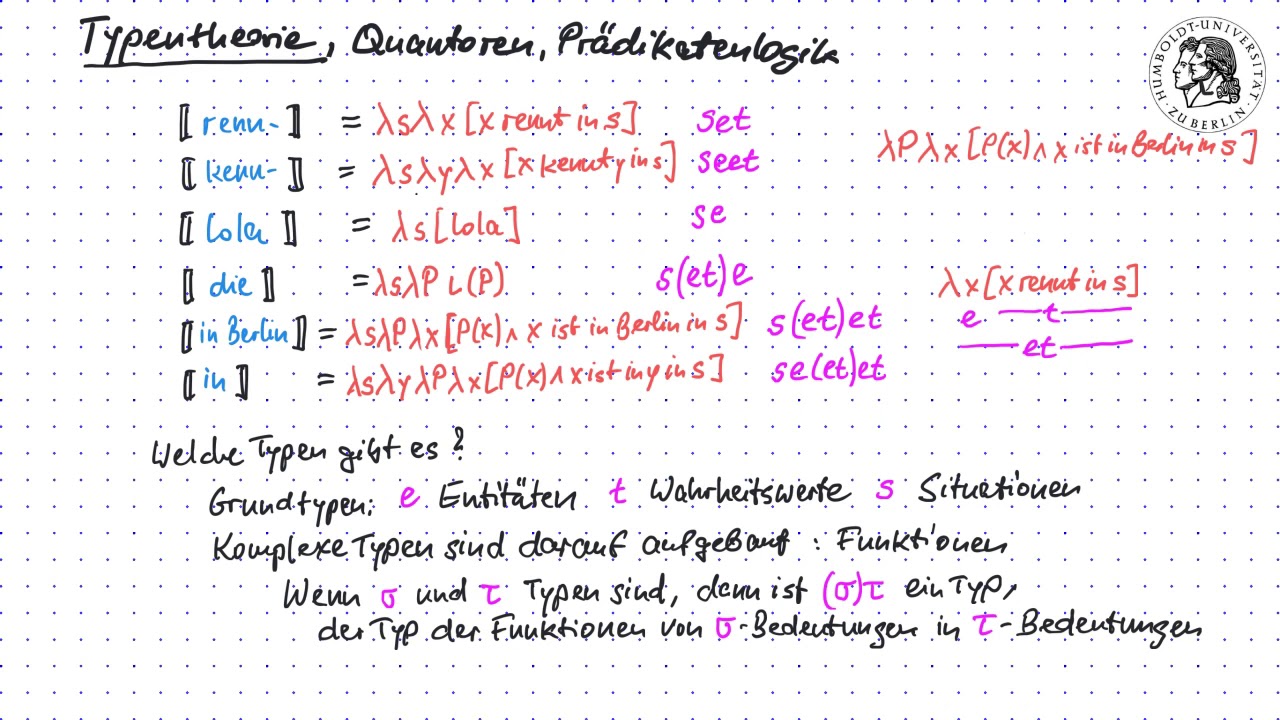 Typentheorie, Quantoren, Prädikatenlogik
HUMBOLDT-UNIVERSITÄT ZU BERLIN
⟦renn-⟧ = λsλx[x rennt in s] set
λPλx[P(x)∧x ist in Berlin in s]
⟦kenn-⟧ = λsλyλx[x kennt y in s] seet
⟦Lola⟧ = λs[Lola] se
⟦die⟧ = λsλP ι(P) s(et)e
λx[x rennt in s]
e t
et
⟦in Berlin⟧ = λsλPλx[P(x)∧x ist in Berlin in s] s(et)et
⟦in⟧ = λsλyλPλx[P(x)∧x ist in y in s] se(et)et
Welche Typen gibt es?
Grundtypen: e Entitäten t Wahrheitswerte s Situationen
Komplexe Typen sind darauf aufgebaut: Funktionen
Wenn σ und τ Typen sind, dann ist (σ)τ ein Typ,
der Typ der Funktionen von σ-Bedeutungen in τ-Bedeutungen